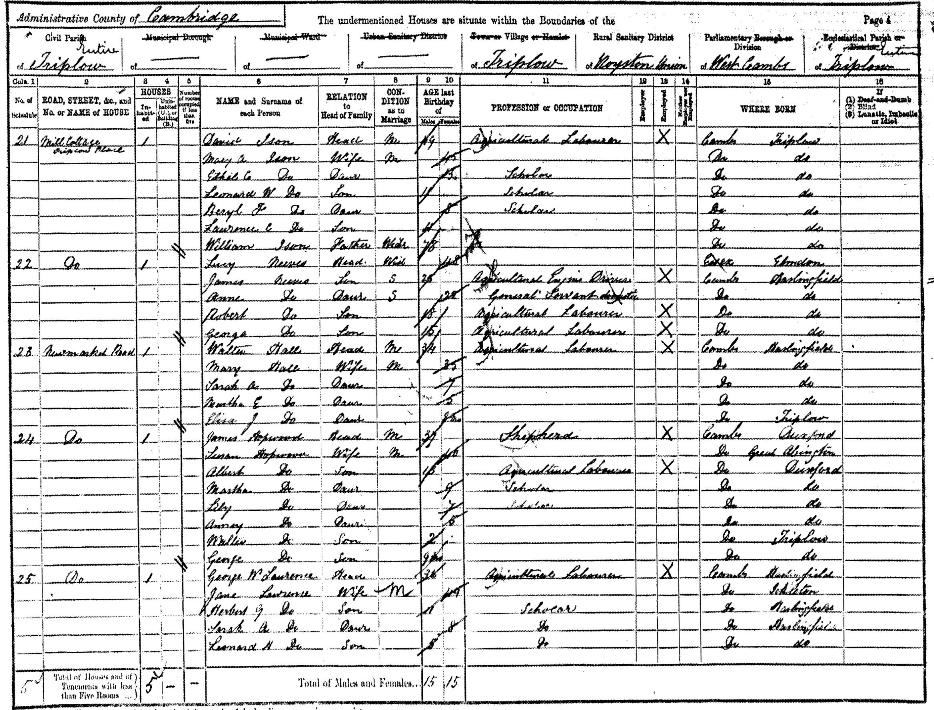 Administrative County of Cambridge The undermentioned Houses are situate within the Boundaries of the Page 4
Civil Parish Municipal Borough Municipal Ward Urban Sanitary District Town or Village or Hamlet Rural Sanitary District Parliamentary Borough or Division Ecclesiastical Parish or District
Entire of Triplow of of of of Triplow of Royston Union of West Cambs of Triplow
Cols. 1 2 3 4 5 6 7 8 9 10 11 12 13 14 15 16
No. of Schedule ROAD, STREET, &c., and No. or NAME of HOUSE HOUSES Inhabited Uninhabited (U.), or Building (B.) Number of rooms occupied if less than five NAME and Surname of each Person RELATION to Head of Family CONDITION as to Marriage AGE last Birthday of Males Females PROFESSION or OCCUPATION Employer Employed WHERE BORN If (1) Deaf-and-Dumb (2) Blind (3) Lunatic, Imbecile or Idiot
21 Mill Cottage 1 David Ison Head M 49 Agricultural Labourer X Cambs Triplow
Mary A Ison Wife M 45 Do do
Ethel C Do Daur 13 Scholar Do do
Leonard W Do Son 11 Scholar Do do
Beryl F Do Daur 8 Scholar Do do
Lawrence C Do Son 4 Do do
William Ison Father Widr 78 Do do
22 Do 1 Lucy Neeves Head Wid Essex Elmdon
James Neeves Son S Agricultural Engine Driver X Cambs Haslingfield
Anne Do Daur S 22 General Servant domestic Do do
Robert Do Son 18 Agricultural Labourer X Do do
George Do Son 15 Agricultural Labourer X Do do
23 Newmarket Road 1 Walter Hall Head M 34 Agricultural Labourer X Cambs Haslingfield
Mary Hall Wife M 35 Do do
Sarah A Do Daur 7 Do do
Martha E Do Daur 5 Do do
Eliza J Do Daur Do Triplow
24 Do 1 James Hopwood Head M 39 Shepherd X Cambs Duxford
Susan Hopwood Wife M Do Great Abington
Albert Do Son 13 Agricultural Labourer X Do Duxford
Martha Do Daur 9 Scholar Do do
Lily Do Daur 7 Scholar Do do
Do Daur 5 Do do
Walter Do Son 2 Do Triplow
George Do Son 9 mo Do do
25 Do 1 George W Lawrence Head Agricultural Labourer X Cambs Haslingfield
Jane Lawrence Wife M Do Ickleton
Herbert G Do Son 11 Scholar Do Haslingfield
Sarah A Do Daur 8 Do Do Haslingfield
Leonard H Do Son 5 Do Do do
5 Total of Houses and of Tenements with less than Five Rooms 5 - - Total of Males and Females... 15 15